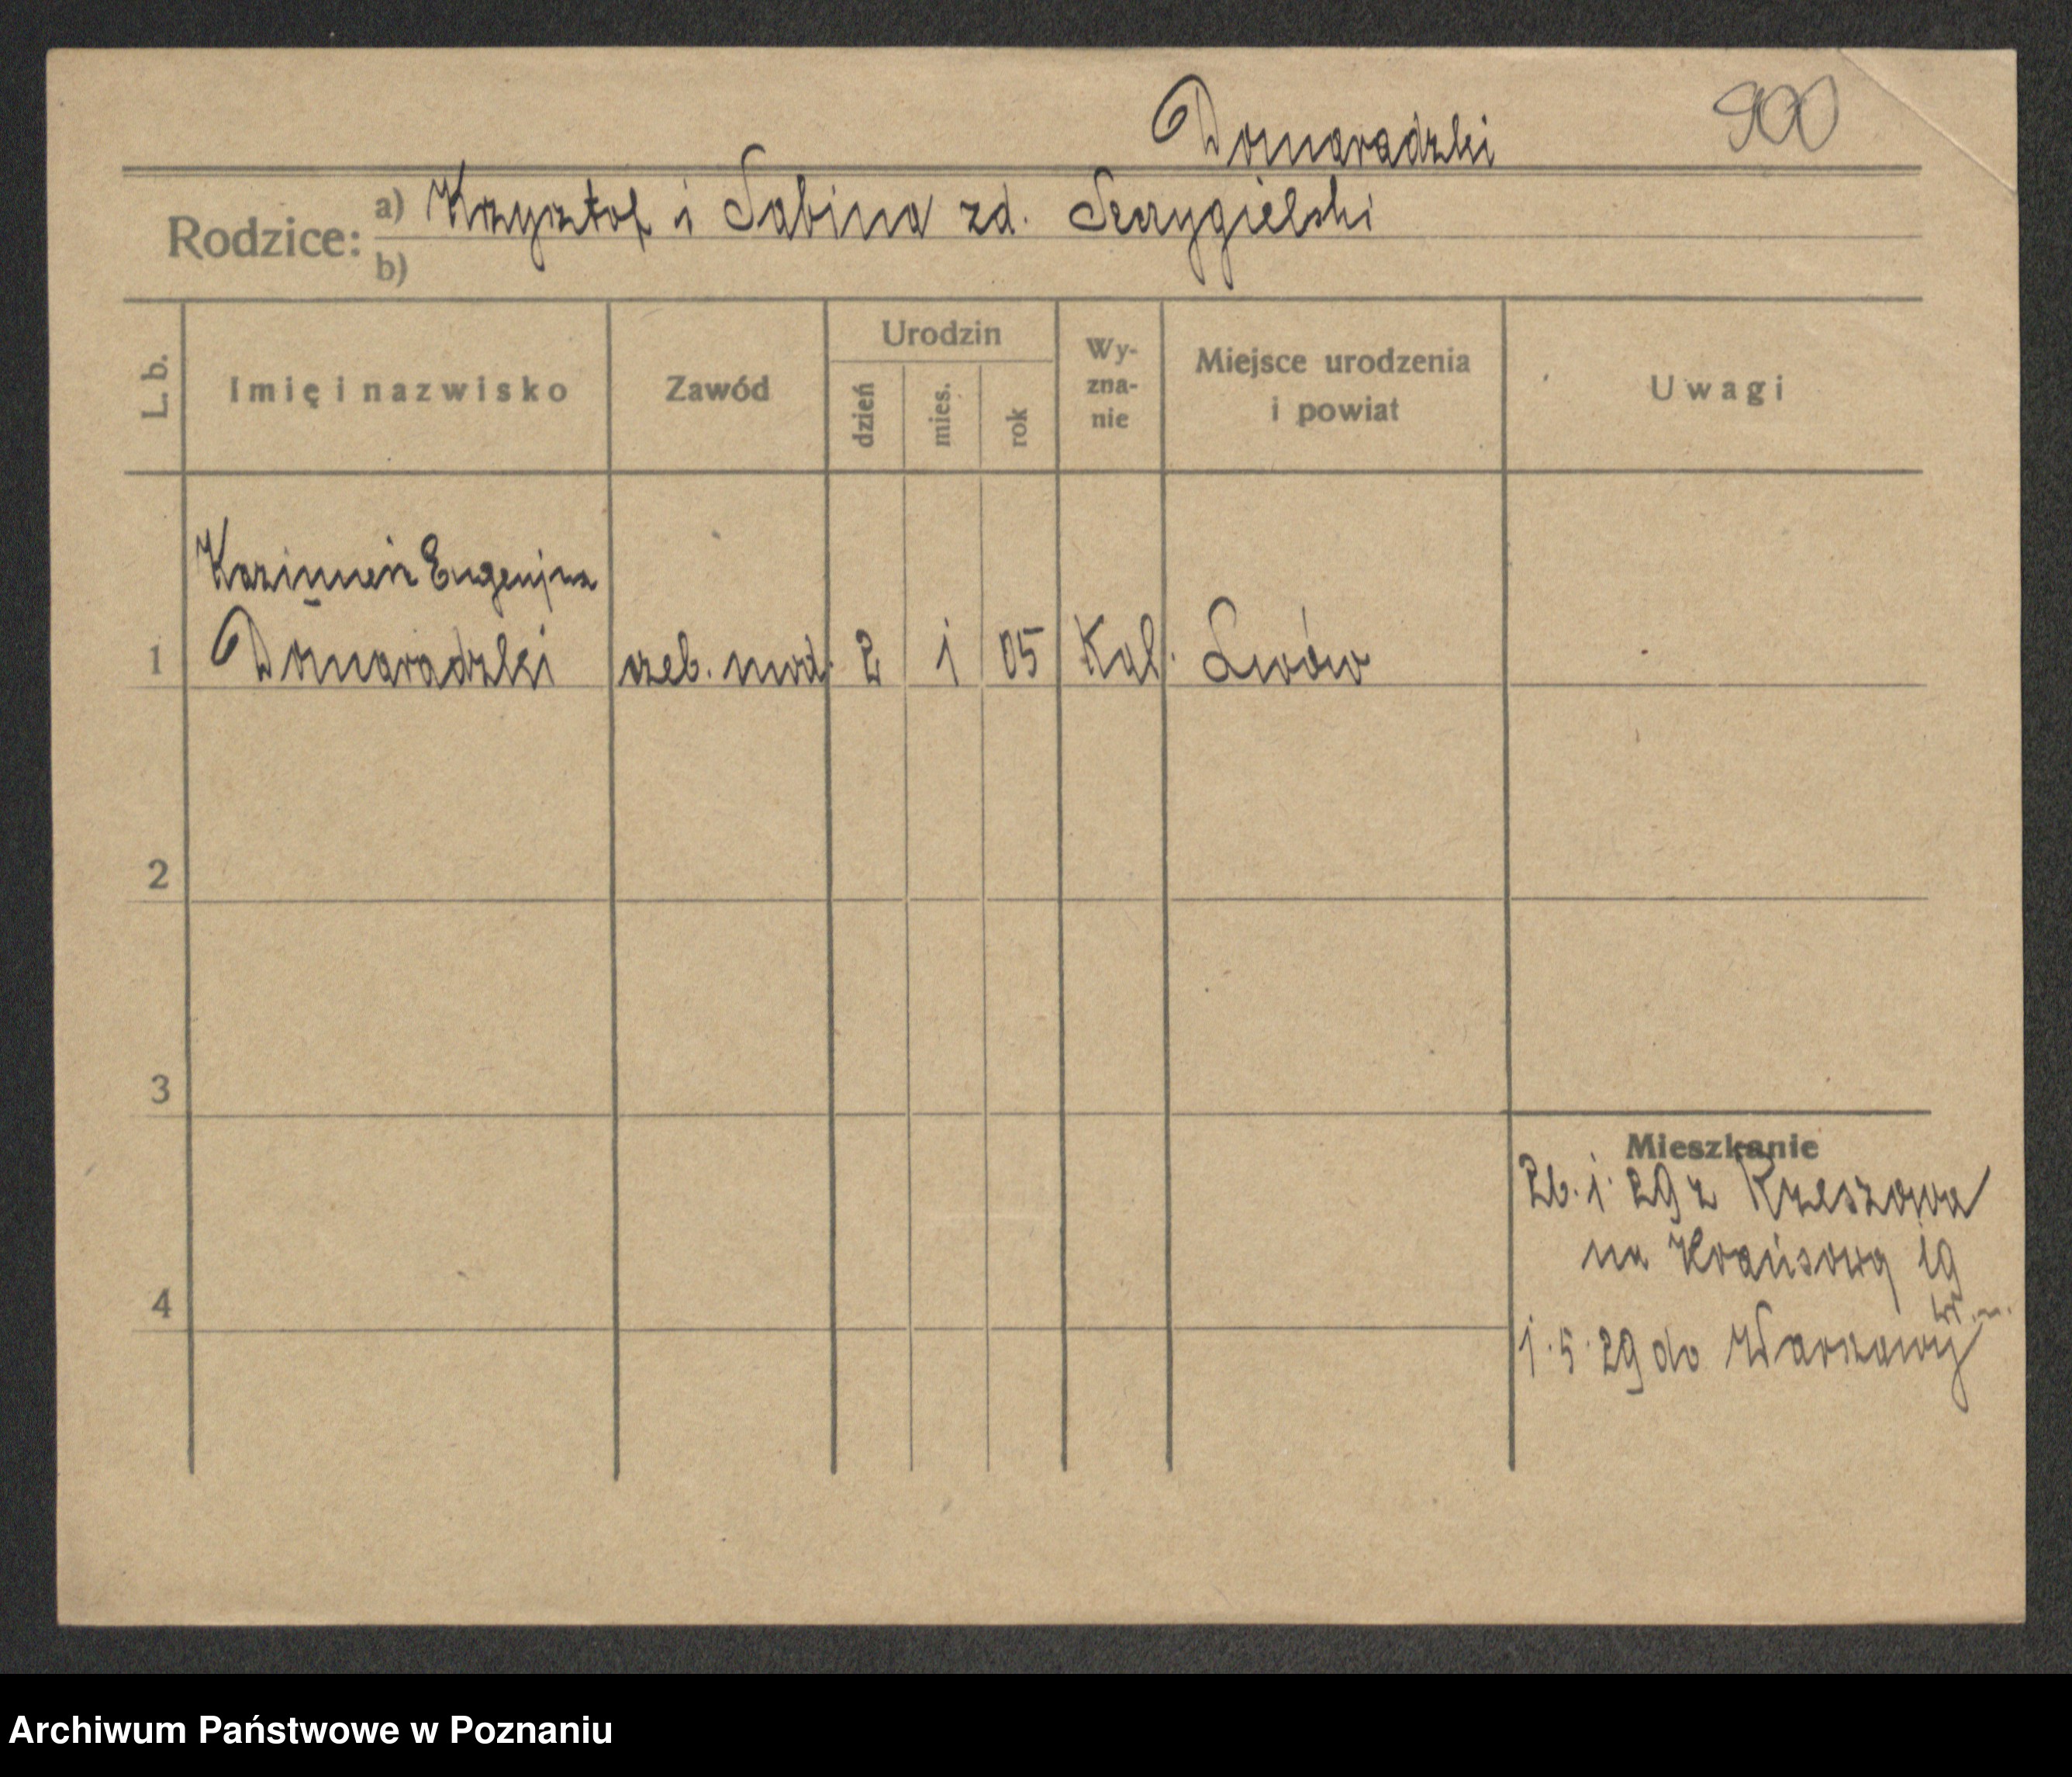 Domaradzki 900
Rodzice: a) Krzysztof i Sabina zd. Szczygielski
b)
L. b. Imię i nazwisko Zawód Urodzin dzień mies. rok Wy-zna-nie Miejsce urodzenia i powiat Uwagi
Kazimierz Eugenjusz
1 Domaradzki czel. 2 1 05 Kat. Lwów
2
3
Mieszkanie
26. 1. 29 z Rzeszowa
4 na 19
1. 5. 29 do Warszawy
Archiwum Państwowe w Poznaniu